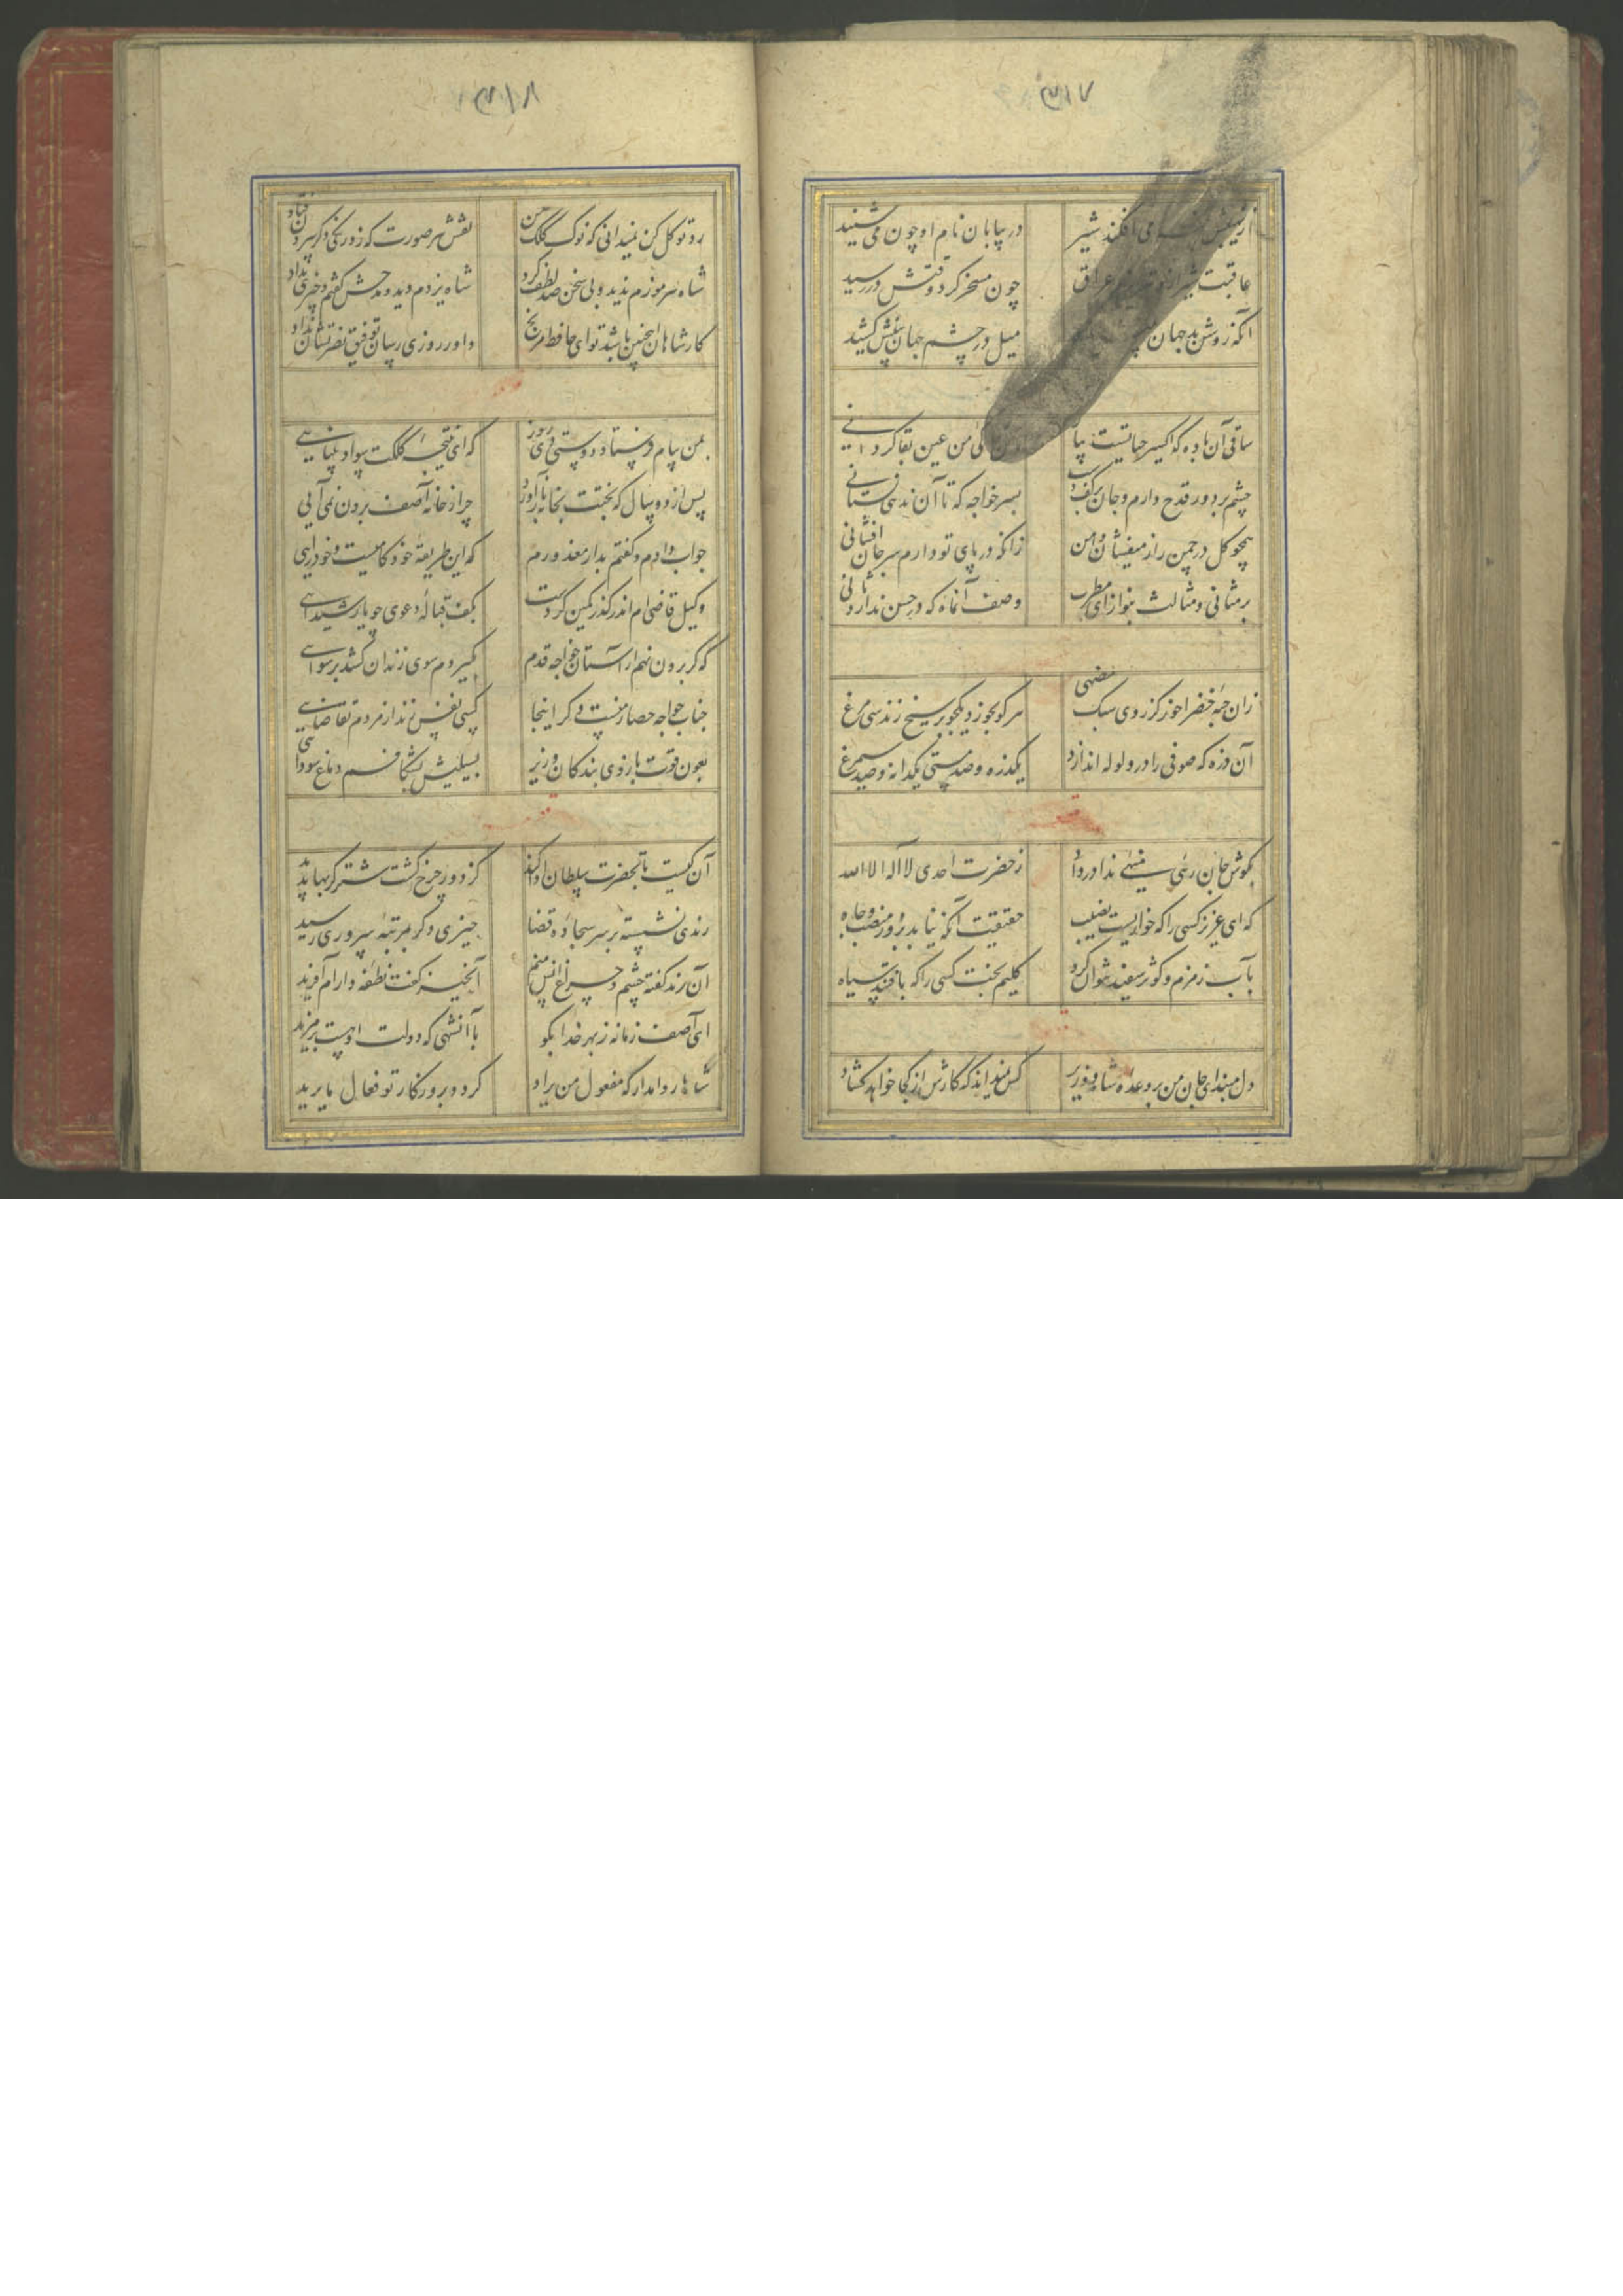 ۳۱۷
از نهیبش می افکند شیر در بیابان نام او چون می شنید
عاقبت شیراز و تبریز و عراق چون مسخر کرد وقتش در رسید
آنکه روشن بد جهان میل در چشم جهان بینش کشید
ساقی آن باده که اکسیر حیاتست بیا من عین بقا گردانی
چشم بر دور قدح دارم و جان بر کف دست بسر خواجه که تا آن ندهی نستانی
همچو گل در چمن از میفشان دامن زانکه در پای تو دارم سر جان افشانی
بر مثانی و مثالث بنواز ای مطرب وصف آن ماه که در حسن ندارد ثانی
زان حبه خضرا خور کز روی سبک هضمی هر کو بخورد یکجو بر سیخ زند سی مرغ
آن ذره که صوفی را در ولوله اندازد یکذره و صد مستی یکدانه و صد سیمرغ
بگوش جان رهی منهیی ندا در داد ز حضرت احدی لا اله الا الله
که ای عزیز کسی را که خواریست نصیب حقیقت آنکه نیابد بزور منصب و جاه
بآب زمزم و کوثر سفید نتوان کرد گلیم بخت کسی را که بافتند سیاه
دل مبند ای جان من بر وعده شاه و وزیر کس نمیداند که کارش از کجا خواهد گشاد
۳۱۸
رو توکل کن نمیدانی که نوک کلک من نقش هر صورت که زد رنگی دگر بیرون فتاد
شاه هرموزم ندید و بی سخن صد لطف کرد شاه یزدم دید و مدحش گفتم و چیزی نداد
کار شاهان اینچنین باشد تو ای حافظ مرنج داور روزی رسان توفیق نصرتشان داد
بمن پیام فرستاد دوستی دی روز که ای نتیجه کلکت سواد بینایی
پس از دو سال که بختت بخانه باز آورد چرا ز خانه آصف برون نمی آیی
جواب دادم و گفتم بدار معذورم که این طریقه خودکامیست و خودرایی
وکیل قاضی ام اندر گذر کمین کردست بکف قباله دعوی چو یار شیدایی
که گر برون نهم از آستان خواجه قدم بگیردم سوی زندان کشد برسوایی
جناب خواجه حصار منست و گر اینجا کسی نفس زند از مردم تقاضایی
بعون قوت بازوی بندگان وزیر بسیلیش بشکافم دماغ سودایی
آن کیست تا بحضرت سلطان ادا کند کز دور چرخ گشت شتر گربها پدید
رندی نشسته بر سر سجاده قضا حیزی دگر بمرتبه سروری رسید
آن رند گفته چشم و چراغ انس منم آن حیز گفت نطفه دارام آفرید
ای آصف زمانه ز بهر خدا بگو با آن شهی که دولت اوست بر مزید
شاها روا مدار که مفعول من یراد گردد بروزگار تو فعال ما یرید